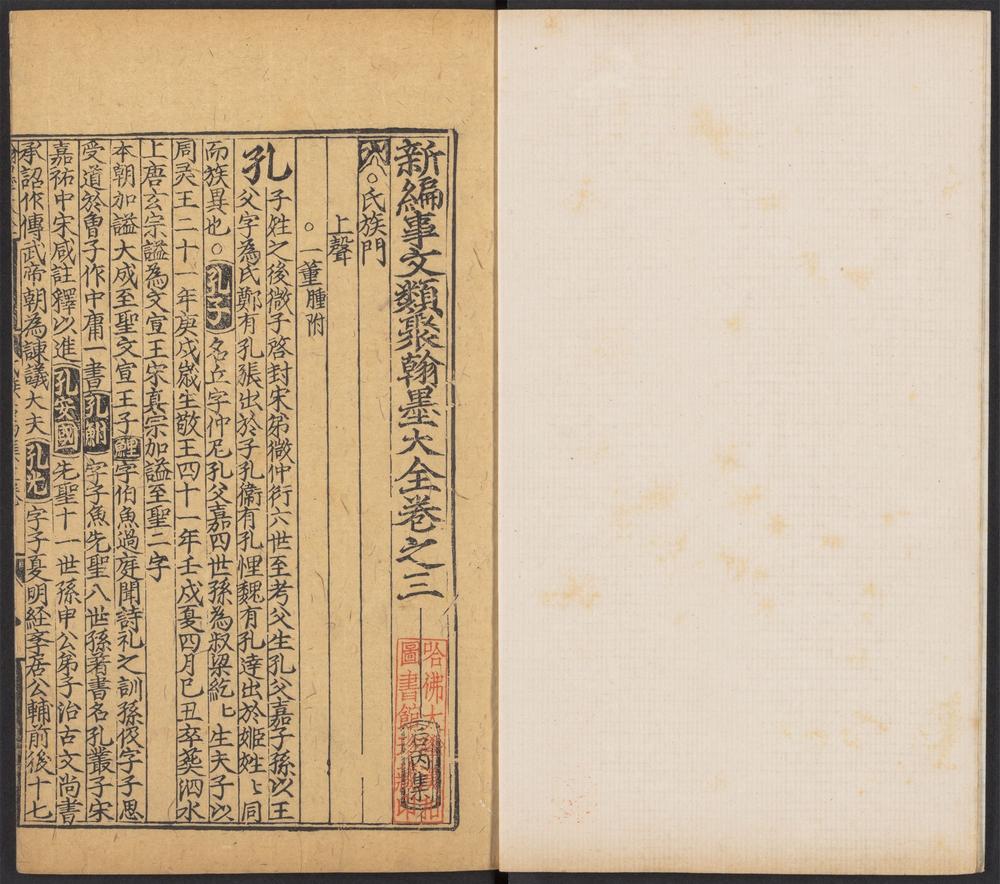 新編事文類聚翰墨大全卷之三
后丙集
哈佛大
圖書館珍藏印
○氏族門
上聲
○一董腫附
孔子姓之後微子啓封宋弟微仲衍六世至考父生孔父嘉子孫以王
父字為氏鄭有孔張出於子孔衞有孔悝魏有孔達出於姬姓〻同
而族異也○孔子名丘字仲尼孔父嘉四世孫為叔梁紇〻生夫子以
周灵王二十一年庚戌嵗生敬王四十一年壬戌夏四月巳丑卒葬泗水
上唐玄宗謚為文宣王宋真宗加謚至聖二字
本朝加謚大成至聖文宣王子鯉字伯魚過庭聞詩礼之訓孫伋字子思
受道於曾子作中庸一書孔鮒字子魚先聖八世孫著書名孔叢子宋
嘉祐中宋咸註釋以進孔安國先聖十一世孫申公弟子治古文尚書
承詔作傳武帝朝為諫議大夫孔光字子夏明経李居公輔前後十七